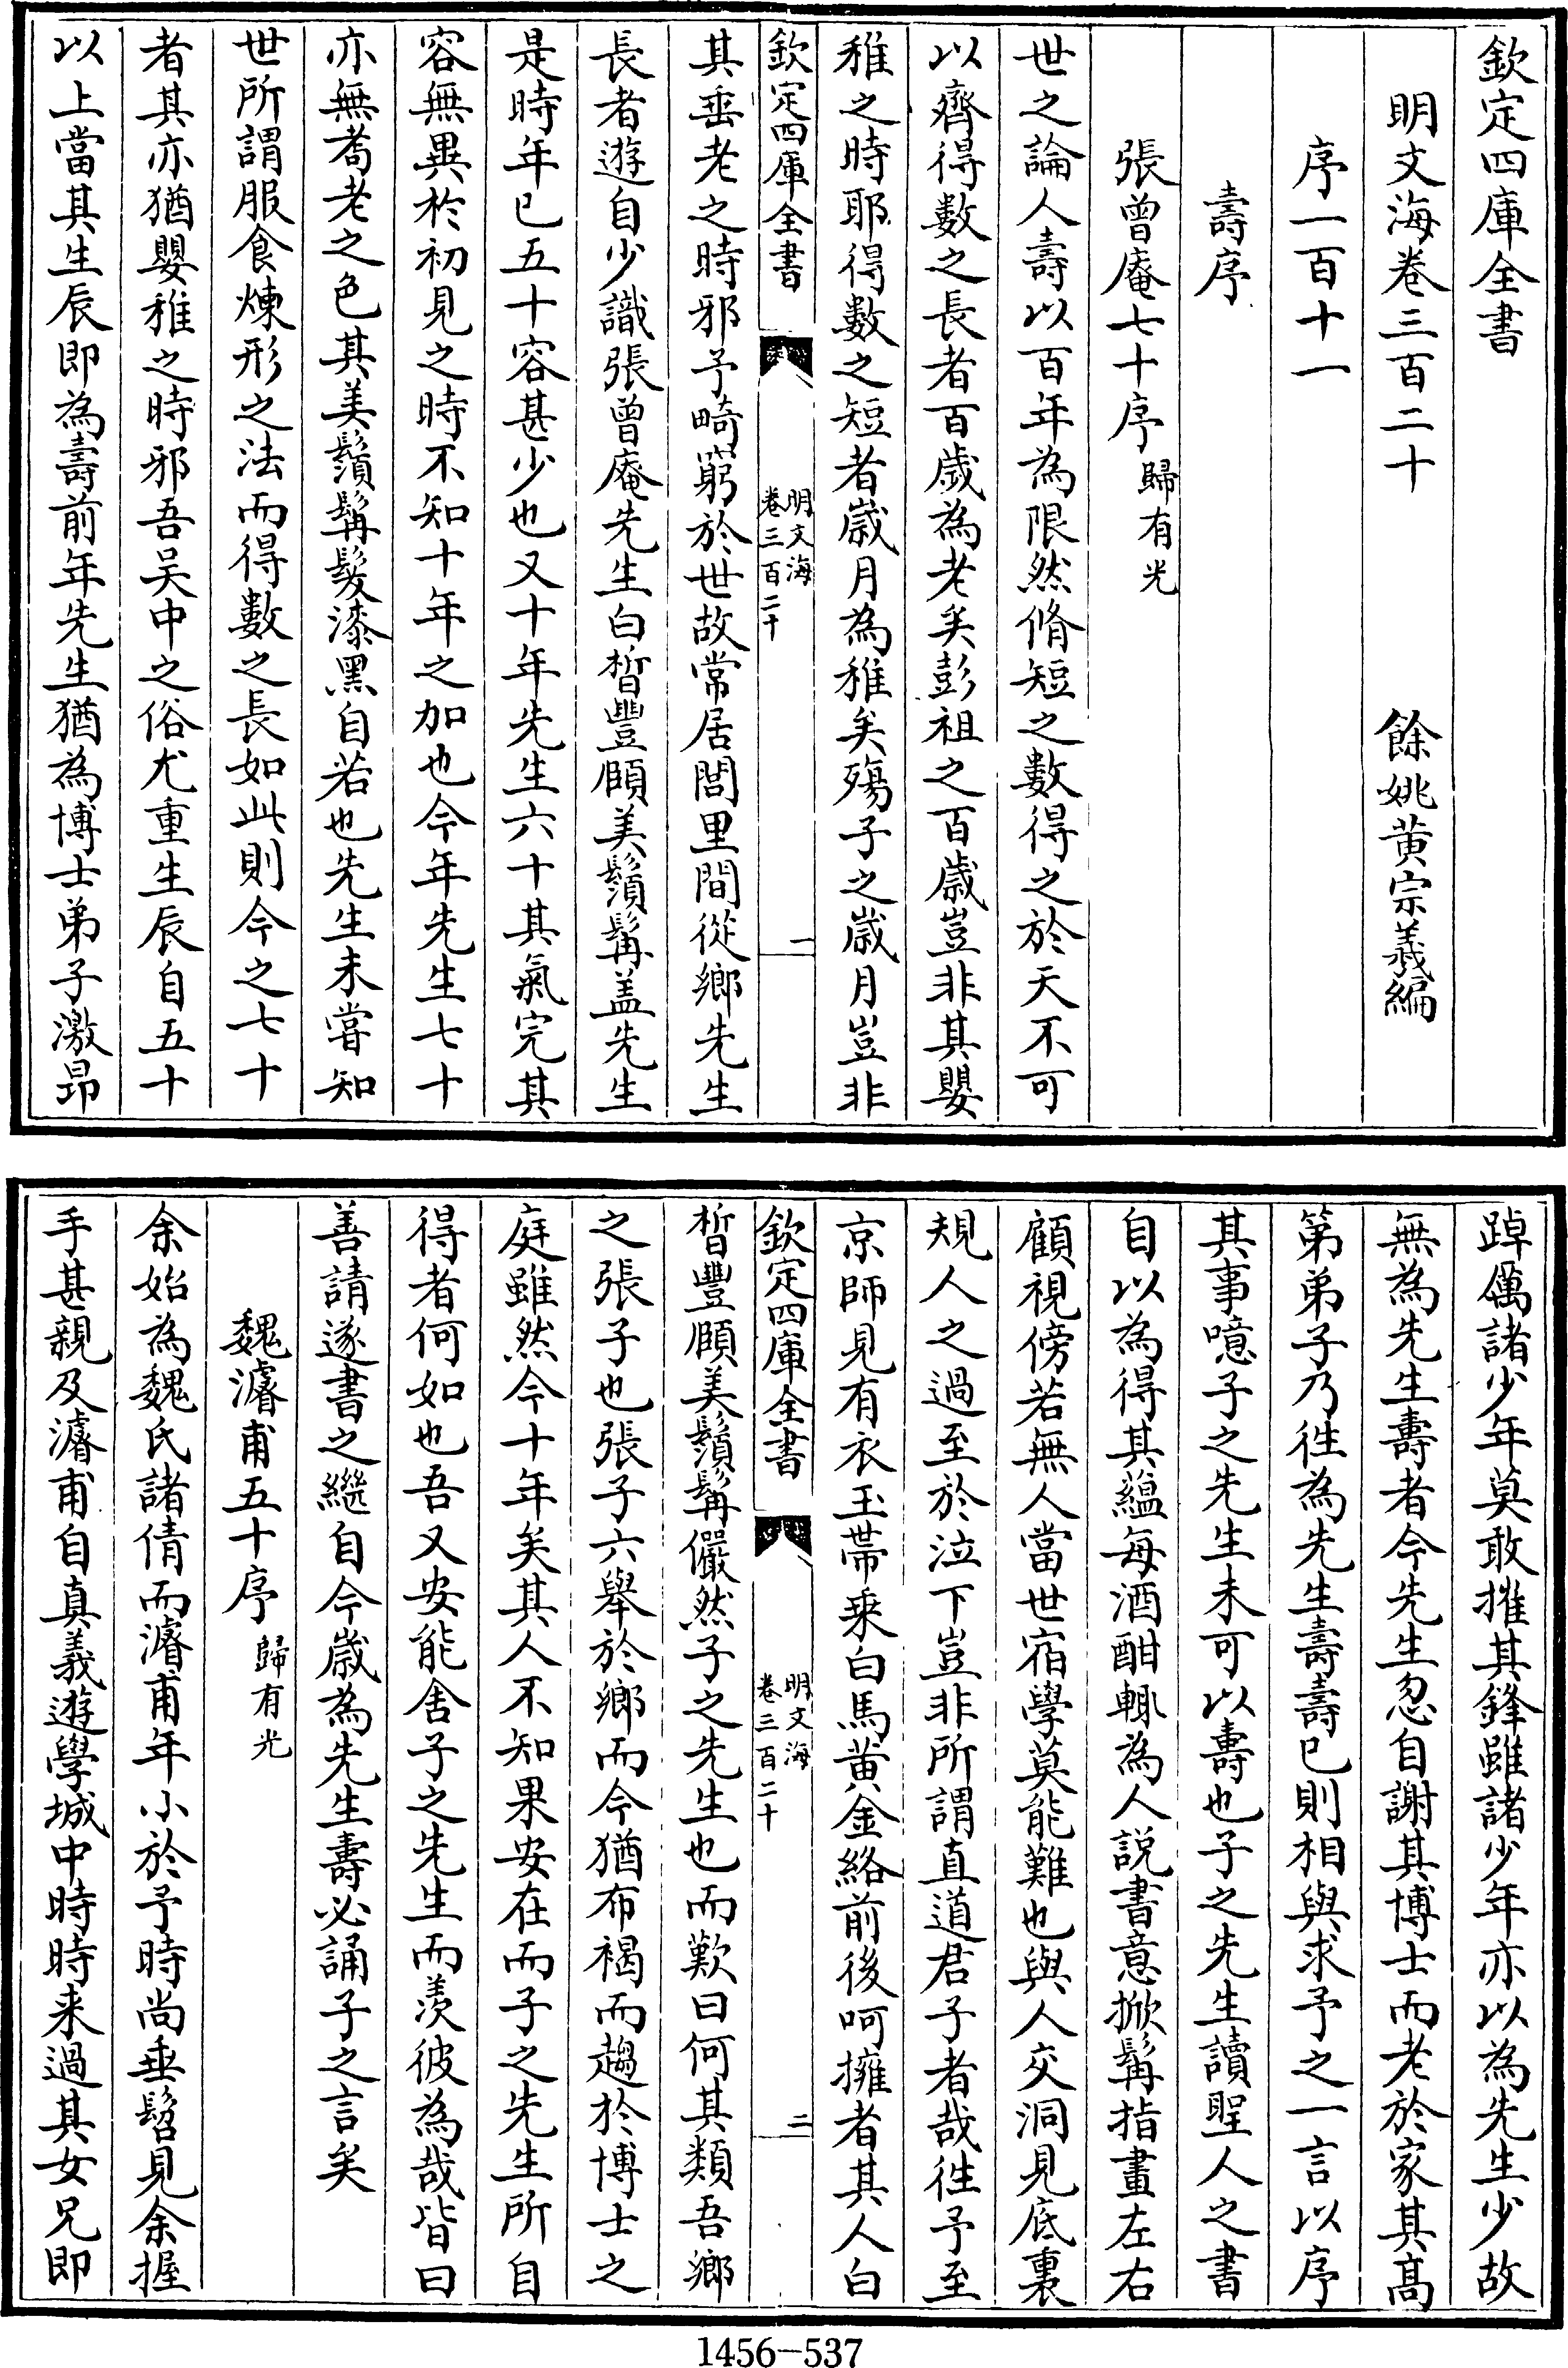 欽定四庫全書
明文海卷三百二十 餘姚黄宗羲編
序一百十一
壽序
張曾庵七十序歸有光
世之論人壽以百年為限然脩短之數得之於天不可
以齊得數之長者百歲為老矣彭祖之百歲豈非其嬰
稚之時耶得數之短者歲月為稚矣殤子之歲月豈非
欽定四庫全書 明文海 卷三百二十 一
其垂老之時邪予畸窮於世故常居閭里間從鄉先生
長者遊自少識張曾庵先生白皙豐頤美鬚髯盖先生
是時年已五十容甚少也又十年先生六十其氣完其
容無異於初見之時不知十年之加也今年先生七十
亦無耇老之色其美鬚髯髮漆黑自若也先生未嘗知
世所謂服食煉形之法而得數之長如此則今之七十
者其亦猶嬰稚之時邪吾吴中之俗尤重生辰自五十
以上當其生辰即為壽前年先生猶為博士弟子激昂
踔厲諸少年莫敢摧其鋒雖諸少年亦以為先生少故
無為先生壽者今先生忽自謝其博士而老於家其髙
第弟子乃徃為先生壽壽已則相與求予之一言以序
其事噫子之先生未可以壽也子之先生讀聖人之書
自以為得其蘊每酒酣輒為人説書意掀髯指畫左右
顧視傍若無人當世宿學莫能難也與人交洞見底裏
規人之過至於泣下豈非所謂直道君子者哉徃予至
京師見有衣玉帶乘白馬黄金絡前後呵擁者其人白
欽定四庫全書 明文海 卷三百二十 二
皙豐頤美鬚髯儼然子之先生也而歎曰何其類吾鄉
之張子也張子六舉於鄉而今猶布褐而趨於博士之
庭雖然今十年矣其人不知果安在而子之先生所自
得者何如也吾又安能舍子之先生而羡彼為哉皆曰
善請遂書之繼自今歲為先生壽必誦子之言矣
魏濬甫五十序歸有光
余始為魏氏諸倩而濬甫年小於予時尚垂髫見余握
手甚親及濬甫自真義遊學城中時時来過其女兄即
1456-537